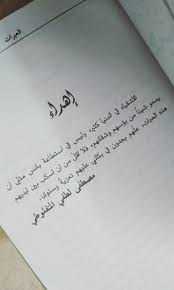 العبرات
إهداء
الأشقياء في الدنيا كثير، وليس في استطاعة بائس مثلي أن
يمحو شيئاً من بؤسهم وشقائهم، فلا أقل من أن أسكب بين أيديهم
هذه العبرات، علهم يجدون في بكائي عليهم تعزية وسلوى.
مصطفى لطفي المنفلوطي